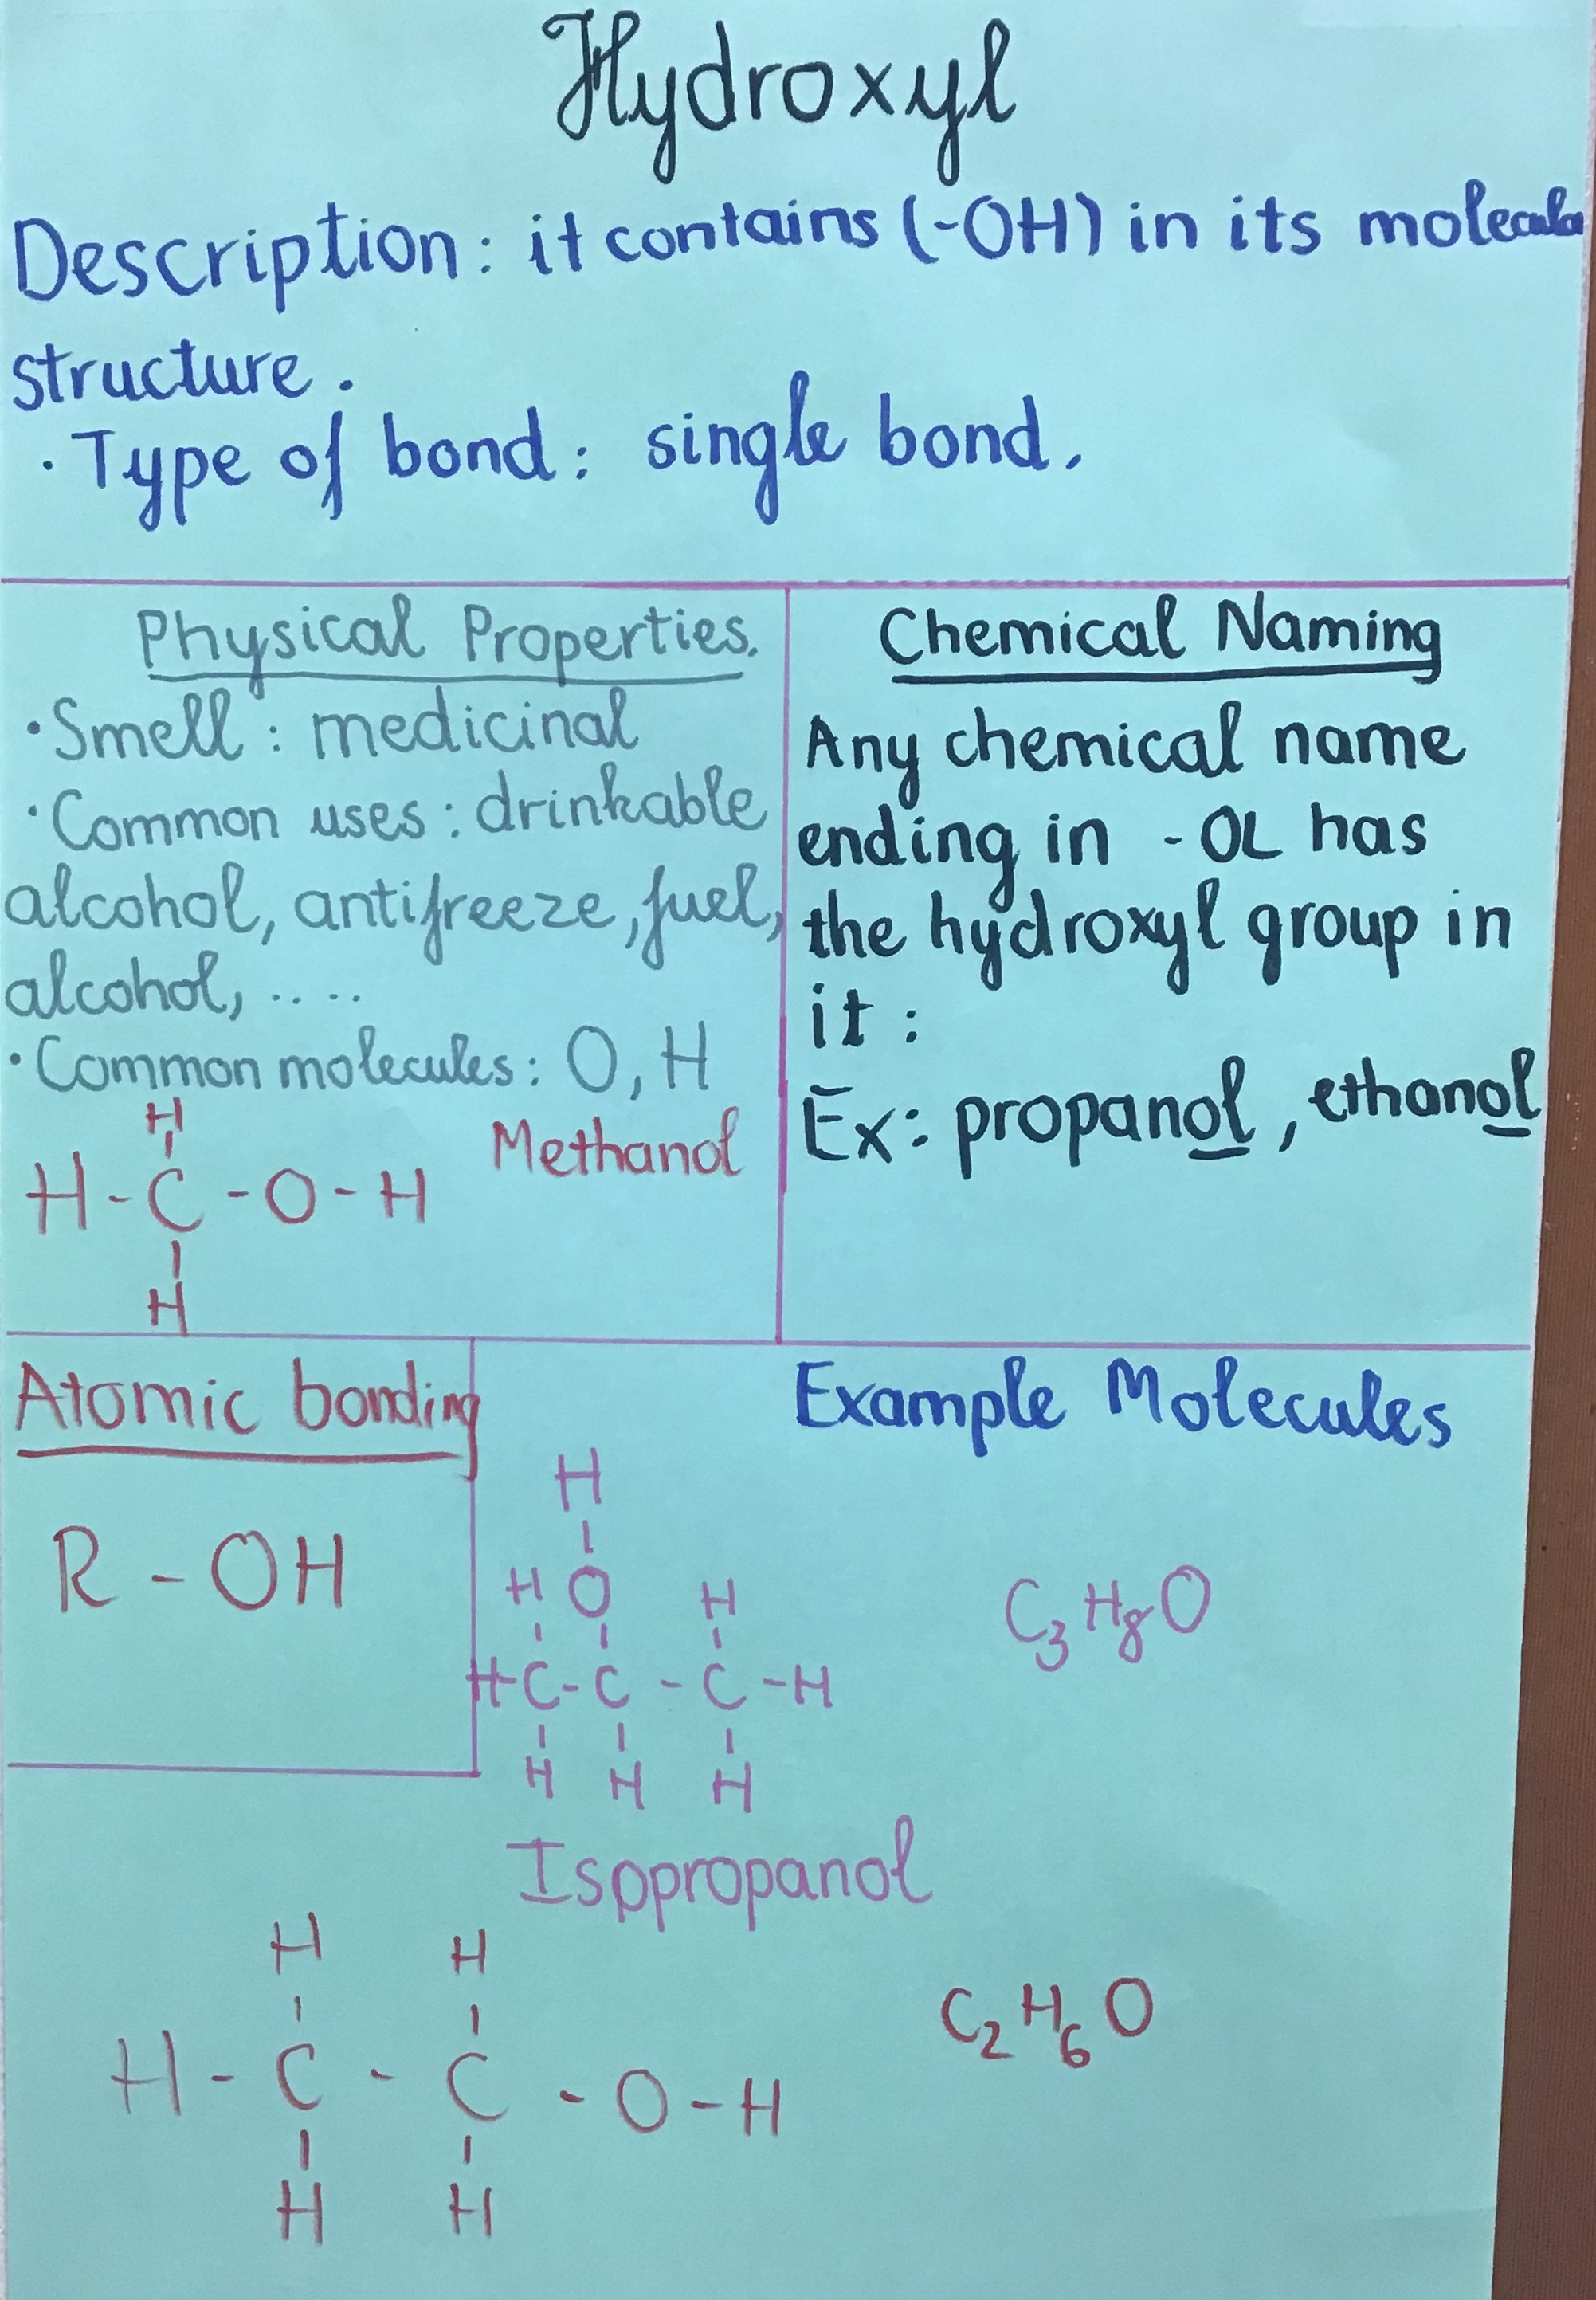 Hydroxyl
Description: it contains (-OH) in its molecular
structure.
· Type of bond: single bond.
Physical Properties.
· Smell: medicinal
· Common uses: drinkable
alcohol, antifreeze, fuel,
alcohol, .. ..
· Common molecules: O, H
H
H - C - O - H
H
Methanol
Chemical Naming
Any chemical name
ending in -OL has
the hydroxyl group in
it :
Ex: propanol, ethanol
Atomic bonding
R - OH
Example Molecules
H
H O H
H-C-C-C-H
H H H
C₃H₈O
Isopropanol
H H
H - C - C - O - H
H H
C₂H₆O